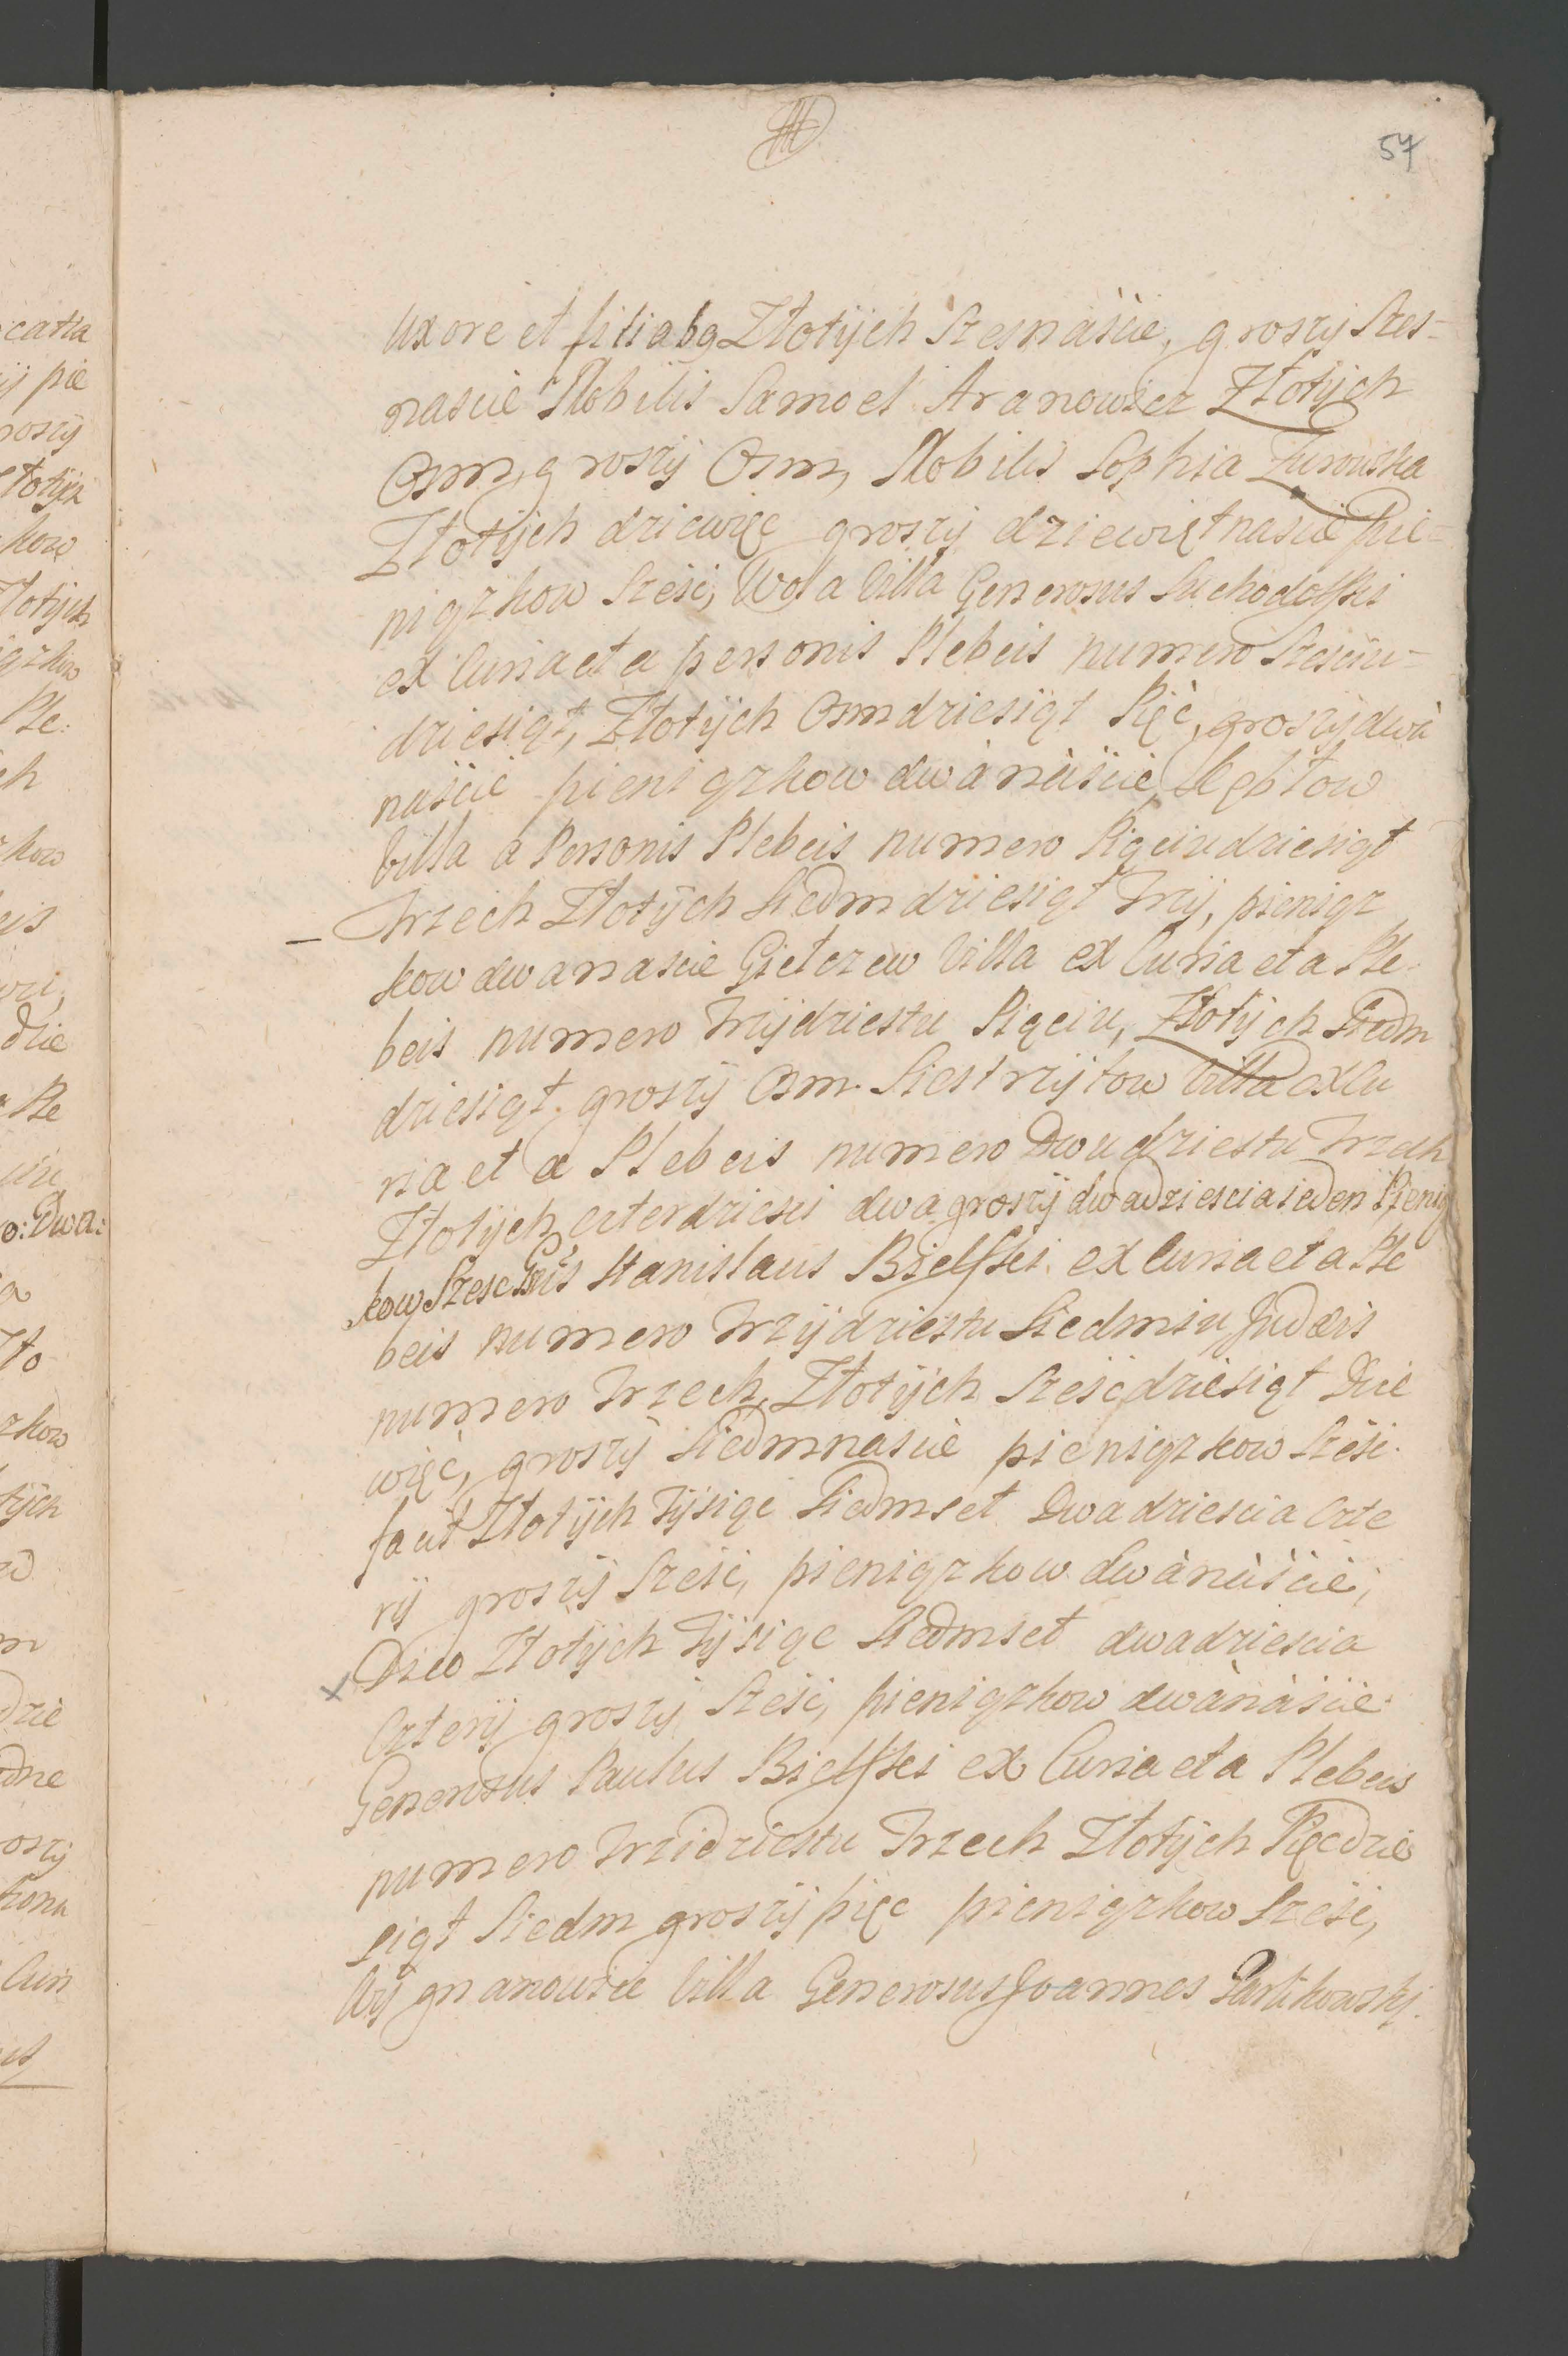 57
Uxore et filiabq Złotÿch Szesnascie, groszÿ Szes-
nascie Nobilis Samoel Aranowicz Złotÿch
Osm, groszÿ Osm, Nobilis Sophia Zurowska
Złotÿch dziewięc groszÿ dziewiętnascie Pie-
niązkow Szesc, Wola Villa Generosus Suchodolski
ex Curia et a personis Plebeis numero Szesciu-
dziesiąt, Złotÿch Osmdziesiąt Pięc, groszÿ dwa
nascie pieniązkow dwanascie, Kębłow
Villa a Personis Plebeis numero Pięciudziesiąt
Trzech Złotÿch Siedmdziesiąt Trzÿ, pieniąz
kow dwanascie Giełczew Villa ex Curia et a Ple-
beis numero Trzÿdziestu Pięciu, Złotÿch Siedm
dziesiąt groszÿ Osm. Siestrzÿtow Villa ex Cu
ria et a Plebeis numero Dwudziestu Trzech
Złotÿch czterdziesci dwa groszÿ dwadziescia ieden Pienią
kow Szesc Gs Stanislaus Bielski ex Curia et a Ple
beis numero Trzÿdziestu Siedmiu Judæis
numero Trzech, Złotÿch Szescdziesiąt Dzie
więc, groszÿ Siedmnascie pieniązkow Szesc.
facit Złotÿch Tÿsiąc Siedmset Dwadziescia Czte
rÿ groszÿ Szesc, pieniązkow dwanascie,
Dico Złotÿch Tÿsiąc Siedmset dwadziescia
Czterÿ groszÿ Szesc, pieniązkow dwanascie
Generosus Paulus Bielski ex Curia et a Plebeis
numero Trzidziestu Trzech Złotÿch Pięcdzie
siąt Siedm groszÿ pięc pieniązkow Szesc,
Wÿgnanowice Villa Generosus Joannes